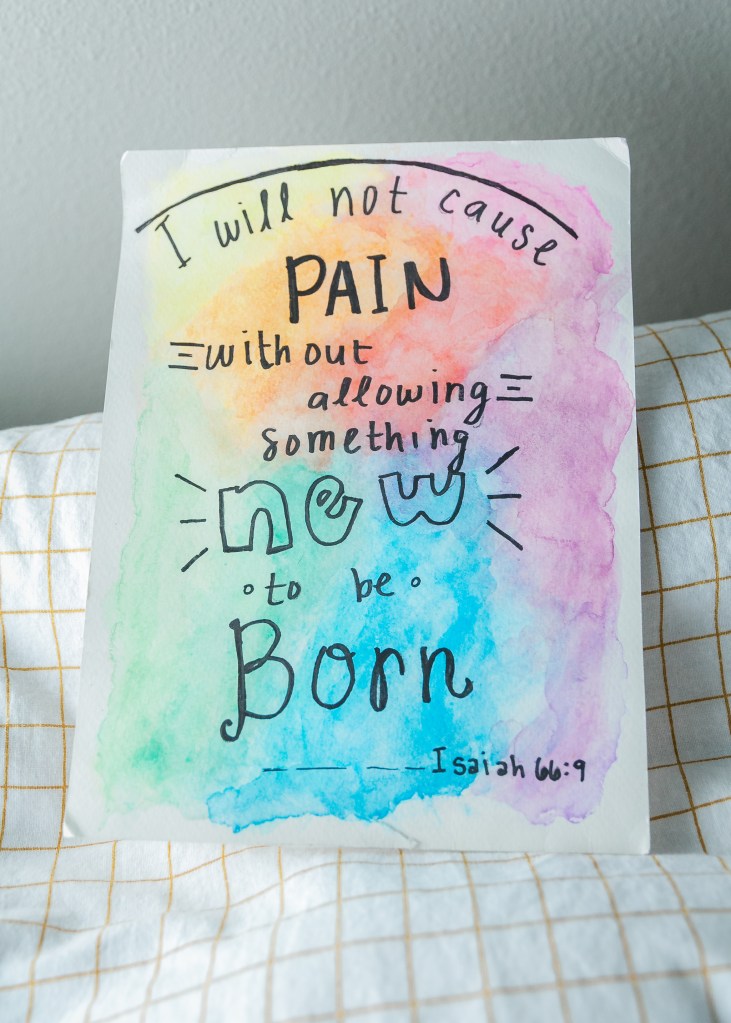 I will not cause
PAIN
without
allowing
something
new
to be
Born
Isaiah 66:9